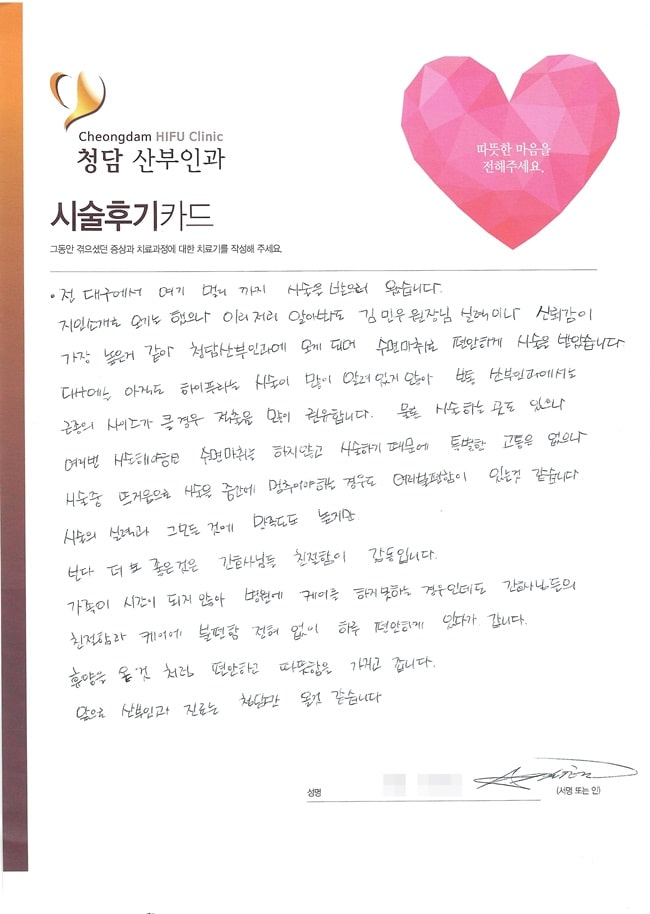 Cheongdam HIFU Clinic
청담 산부인과
따뜻한 마음을
전해주세요.
시술후기카드
그동안 겪으셨던 증상과 치료과정에 대한 치료기를 작성해 주세요.
· 전 대구에서 여기 멀리 까지 시술을 받으러 왔습니다.
지인소개로 오기는 했으나 이리저리 알아봐도 김민우 원장님 실력이나 신뢰감이
가장 높은거 같아 청담산부인과에 오게 되며 수면마취로 편안하게 시술을 받았습니다
대구에는 아직도 하이푸라는 시술이 많이 알려있지 않아 보통 산부인과에서는
근종의 사이즈가 클경우 적출을 많이 권유합니다. 물론 시술하는 곳도 있으나
여러번 시술해야하며 수면마취는 하지않고 시술하기 때문에 특별한 고통은 없으나
시술중 뜨거움으로 시술을 중간에 멈추어야하는 경우도 여러불편함이 있는것 같습니다
시술의 실력과 그모든 것에 만족도도 높지만
보다 더 좋은것은 간호사님들 친절함이 감동입니다.
가족이 시간이 되지 않아 병원에 케어를 하지못하는 경우인데도 간호사님들의
친절함과 케어에 불편함 전혀 없이 하루 편안하게 있다가 갑니다.
휴양을 온것 처럼 편안하고 따뜻함을 가지고 갑니다.
앞으로 산부인과 진료는 청담만 올것 같습니다
성명
(서명 또는 인)